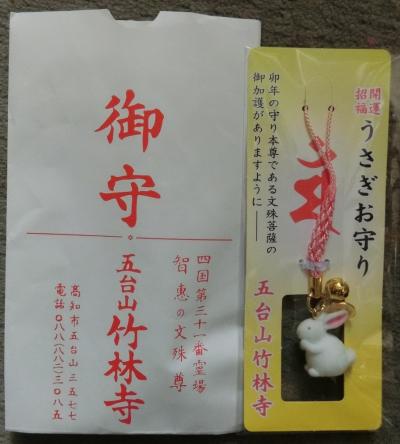 御守
四国第三十一番霊場
智恵の文殊尊
五台山竹林寺
高知市五台山三五七七
電話〇八八(八八二)三〇八五
開運
招福
うさぎお守り
卯年の守り本尊である文殊菩薩の
御加護がありますように――
五台山竹林寺